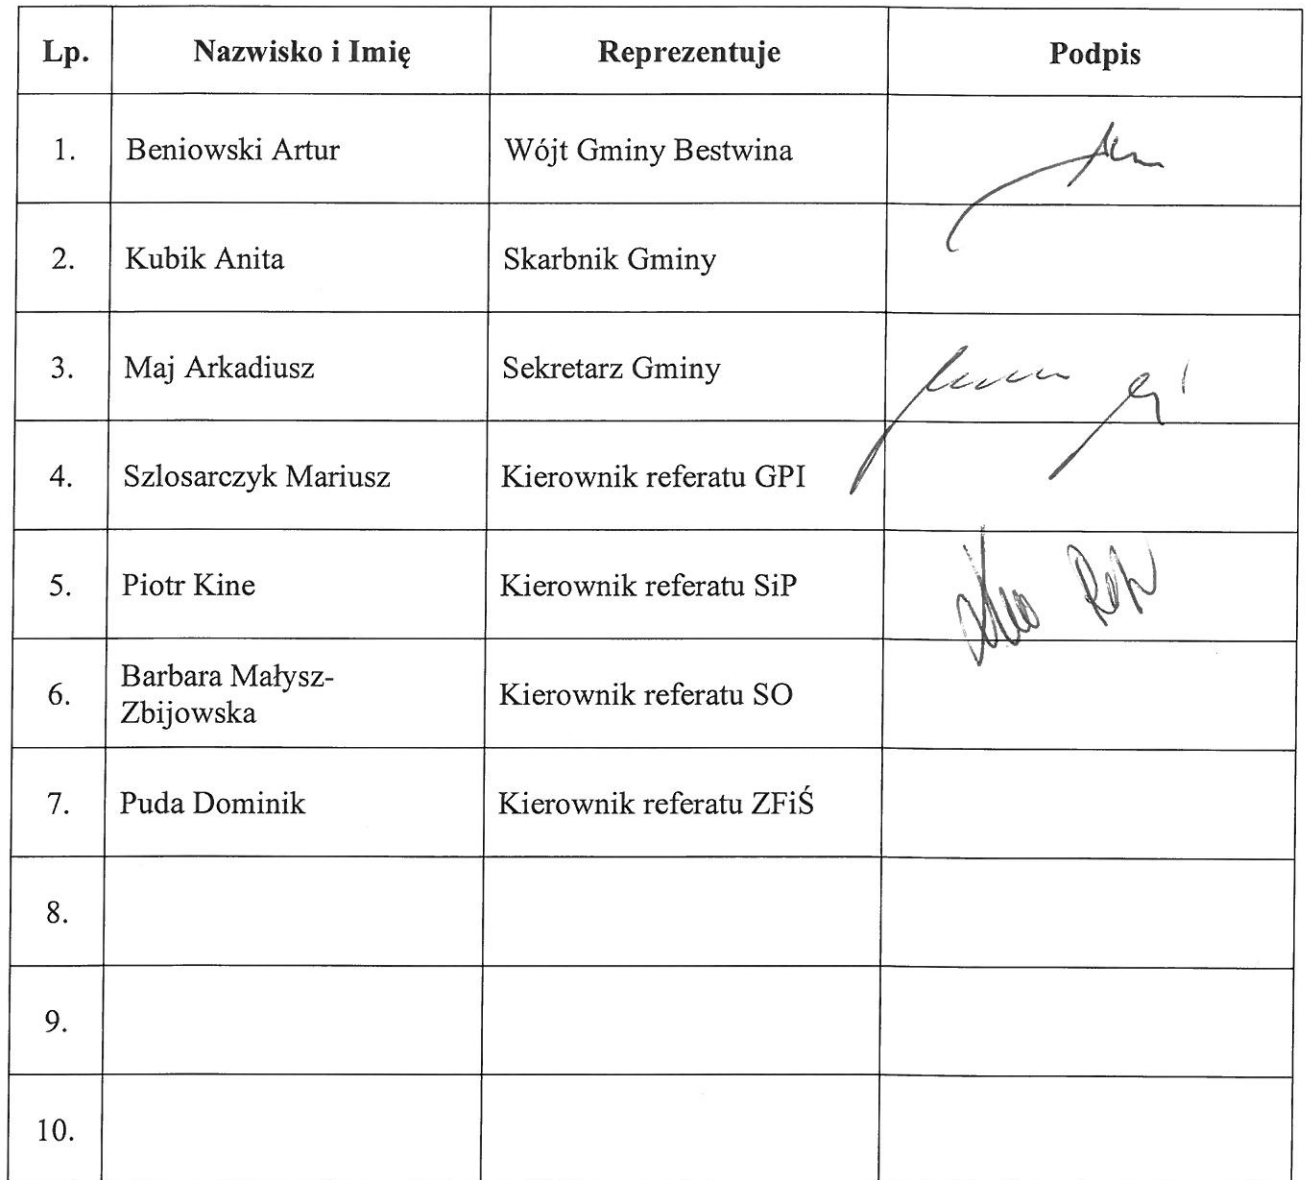 Lp. Nazwisko i Imię Reprezentuje Podpis
1. Beniowski Artur Wójt Gminy Bestwina
2. Kubik Anita Skarbnik Gminy
3. Maj Arkadiusz Sekretarz Gminy
4. Szlosarczyk Mariusz Kierownik referatu GPI
5. Piotr Kine Kierownik referatu SiP
6. Barbara Małysz-
Zbijowska Kierownik referatu SO
7. Puda Dominik Kierownik referatu ZFiŚ
8.
9.
10.